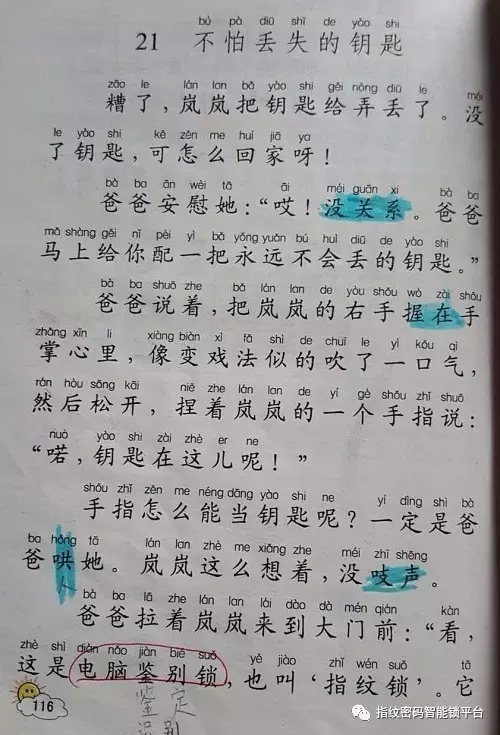 bú pà diū shī de yào shi
21 不怕丢失的钥匙
zāo le lán lan bǎ yào shi gěi nòng diū le méi
糟了，岚岚把钥匙给弄丢了。没
le yào shi kě zěn me huí jiā ya
了钥匙，可怎么回家呀！
bà ba ān wèi tā āi méi guān xi bà ba
爸爸安慰她：“哎！没关系。爸爸
mǎ shàng gěi nǐ pèi yì bǎ yǒng yuǎn bú huì diū de yào shi
马上给你配一把永远不会丢的钥匙。”
bà ba shuō zhe bǎ lán lan de yòu shǒu wò zài shǒu
爸爸说着，把岚岚的右手握在手
zhǎng xīn li xiàng biàn xì fǎ shì de chuī le yì kǒu qì
掌心里，像变戏法似的吹了一口气，
rán hòu sōng kāi niē zhe lán lan de yí gè shǒu zhǐ shuō
然后松开，捏着岚岚的一个手指说：
nuò yào shi zài zhè er ne
“喏，钥匙在这儿呢！”
shǒu zhǐ zěn me néng dāng yào shi ne yí dìng shì bà
手指怎么能当钥匙呢？一定是爸
ba hǒng tā lán lan zhè me xiǎng zhe méi zhī shēng
爸哄她。岚岚这么想着，没吱声。
bà ba lā zhe lán lan lái dào dà mén qián kàn
爸爸拉着岚岚来到大门前：“看，
zhè shì diàn nǎo jiàn bié suǒ yě jiào zhǐ wén suǒ tā
这是电脑鉴别锁，也叫‘指纹锁’。它
鉴定
识别
116
指纹密码智能锁平台